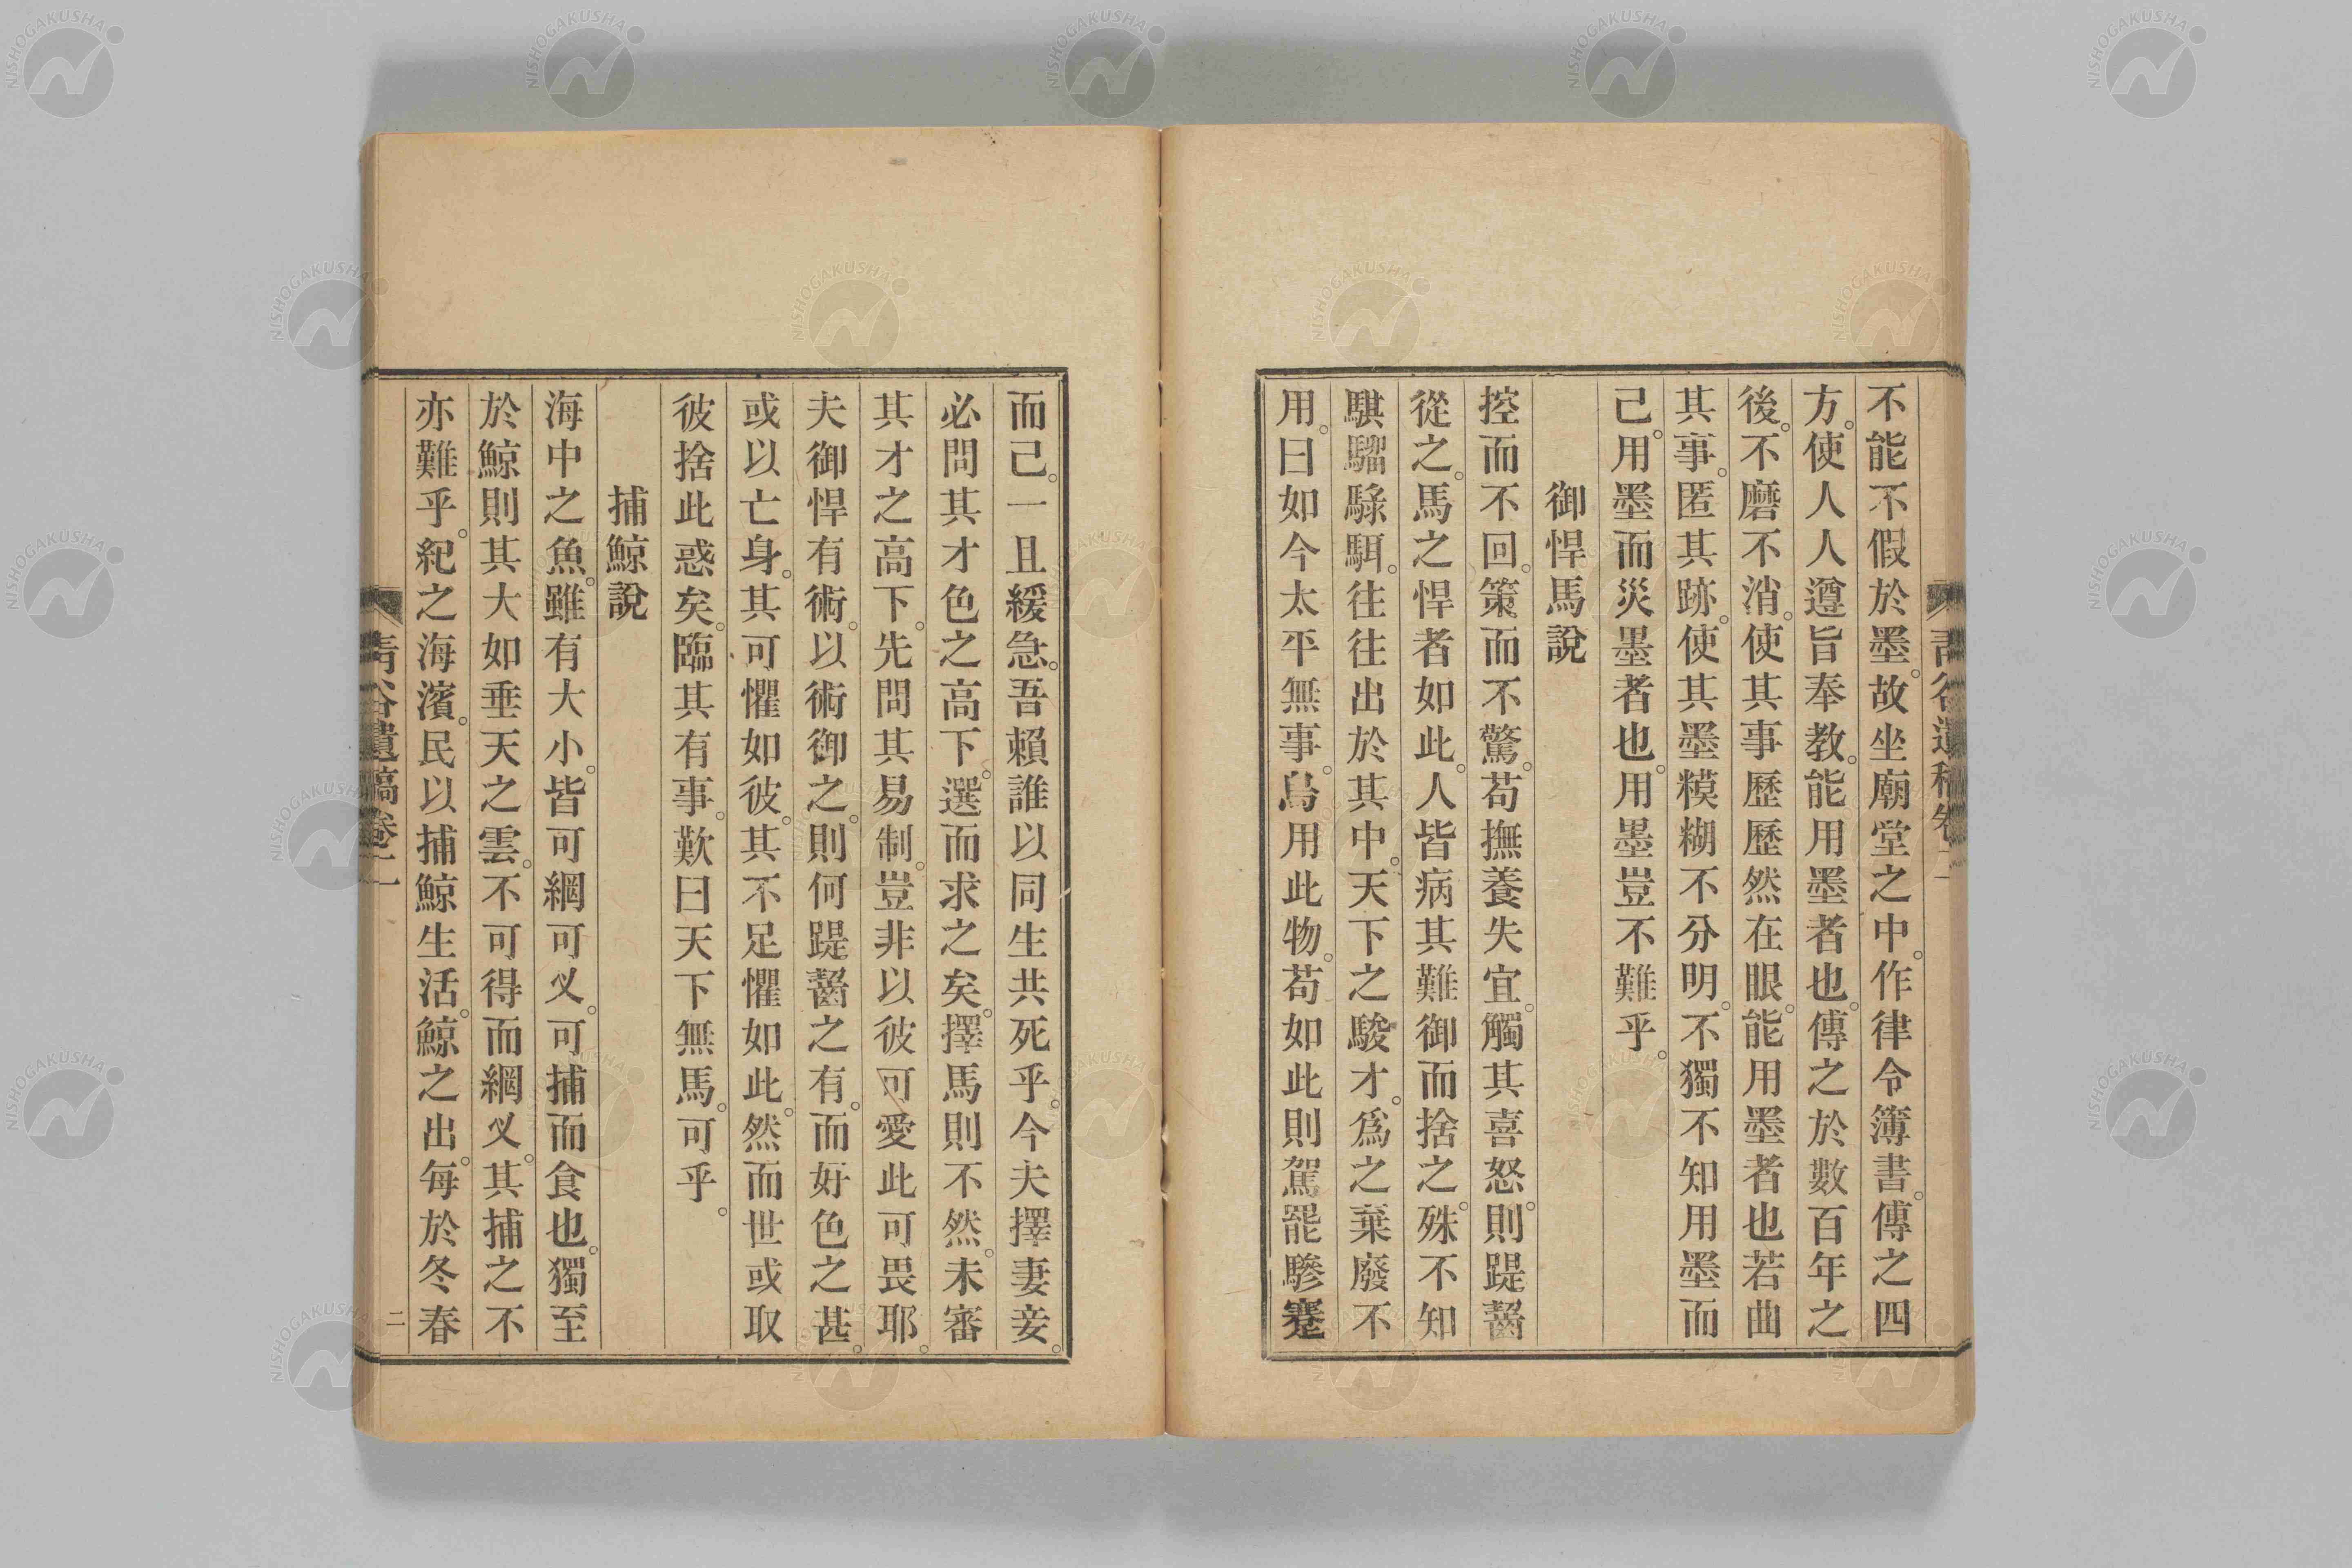 不能不假於墨。故坐廟堂之中。作律令簿書。傳之四
方。使人人遵旨奉教。能用墨者也。傳之於數百年之
後。不磨不消。使其事歷歷然在眼。能用墨者也若曲
其事。匿其跡。使其墨糢糊不分明。不獨不知用墨而
已。用墨而災墨者也。用墨豈不難乎。
御悍馬說
控而不回。策而不驚。苟撫養失宜。觸其喜怒。則踶齧
從之。馬之悍者如此。人皆病其難御而捨之。殊不知
騏驑騄駬。往往出於其中。天下之駿才。爲之棄廢不
用。曰如今太平無事。烏用此物。苟如此則駕罷驂蹇
而已。一且緩急。吾賴誰以同生共死乎。今夫擇妻妾。
必問其才色之高下。選而求之矣。擇馬則不然。未審
其才之高下。先問其易制。豈非以彼可愛此可畏耶。
夫御悍有術。以術御之。則何踶齧之有。而好色之甚。
或以亡身。其可懼如彼。其不足懼如此。然而世或取
彼捨此惑矣。臨其有事。歎曰天下無馬。可乎。
捕鯨說
海中之魚。雖有大小。皆可網可㕚。可捕而食也。獨至
於鯨則其大如垂天之雲。不可得而網㕚。其捕之不
亦難乎。紀之海濱。民以捕鯨生活。鯨之出。每於冬春
靑谷遺稿卷二
二
NISHOGAKUSHA